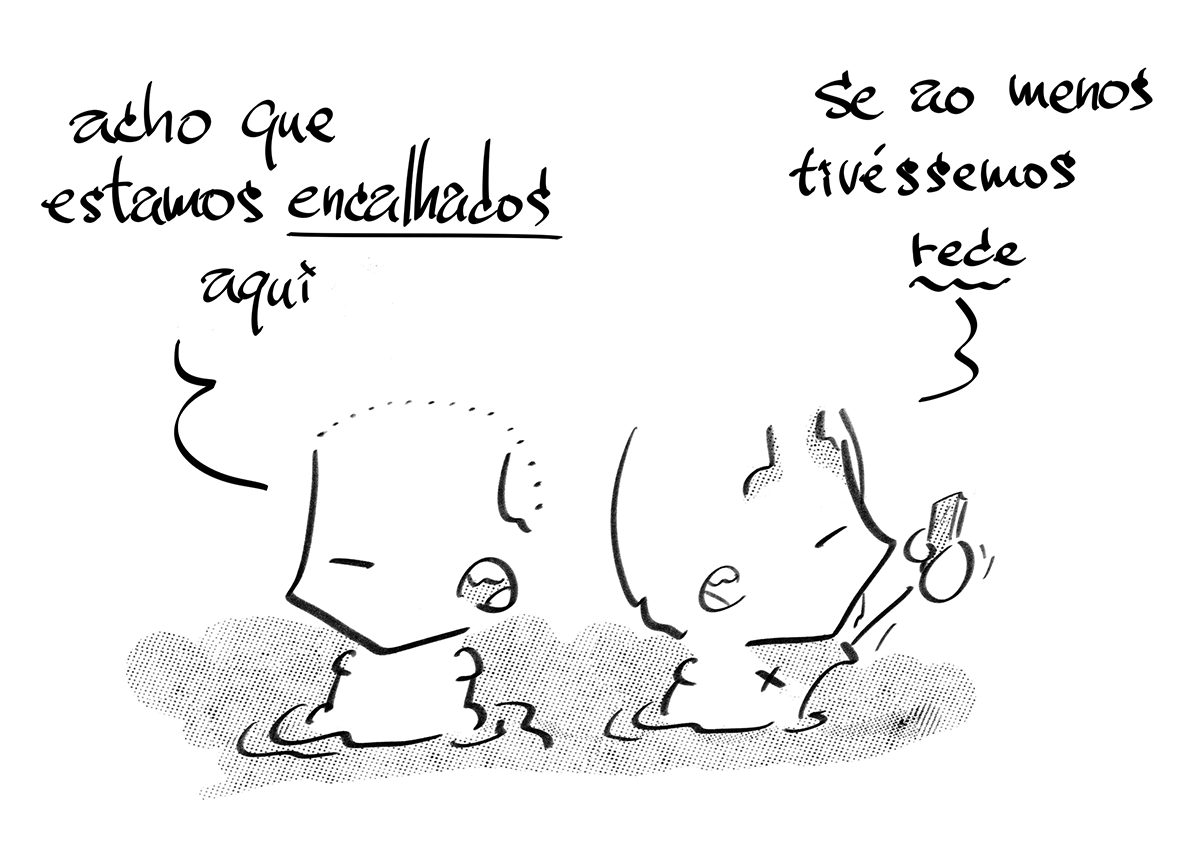 acho que
estamos encalhados
aqui
se ao menos
tivéssemos
rede